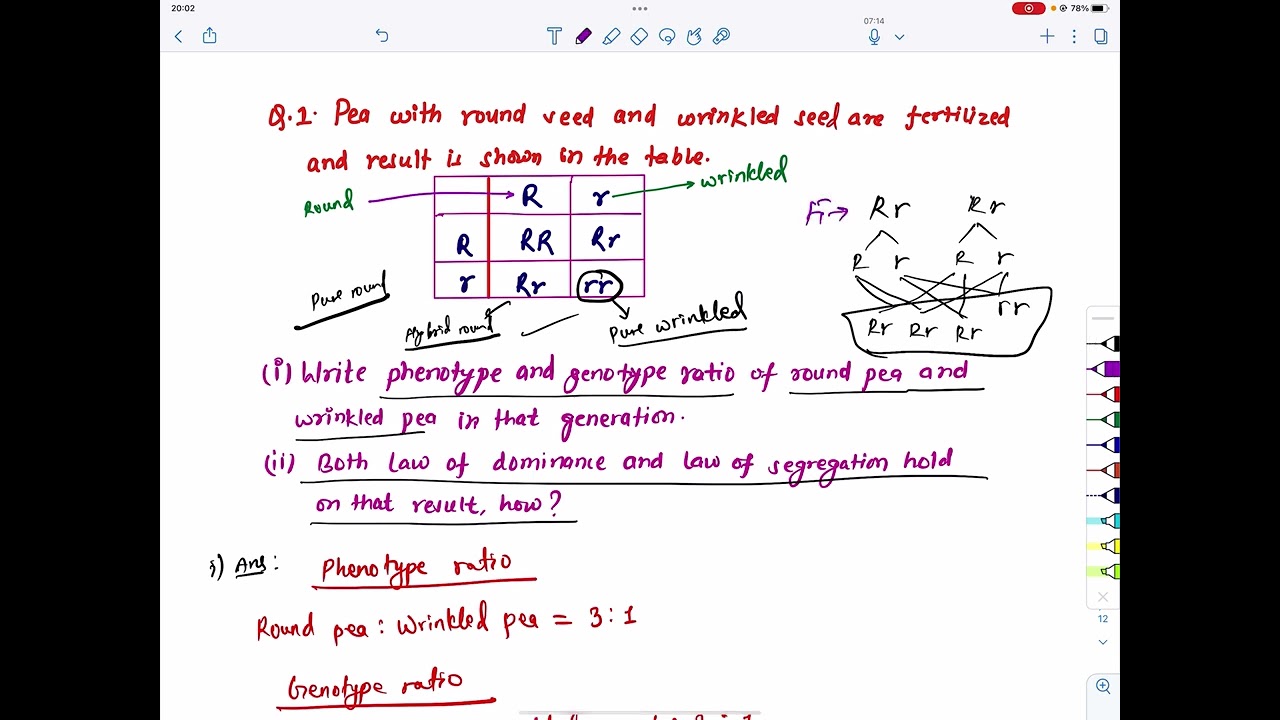 20:02
78%
07:14
Q.1. Pea with round seed and wrinkled seed are fertilized
and result is shown in the table.
Round
R r
wrinkled
R RR Rr
r Rr rr
Pure round
Hybrid round
Pure wrinkled
F1→ Rr Rr
R r R r
rr
Rr Rr Rr
(i) Write phenotype and genotype ratio of round pea and
wrinkled pea in that generation.
(ii) Both law of dominance and law of segregation hold
on that result, how?
i) Ans: Phenotype ratio
Round pea : Wrinkled pea = 3:1
Genotype ratio
12